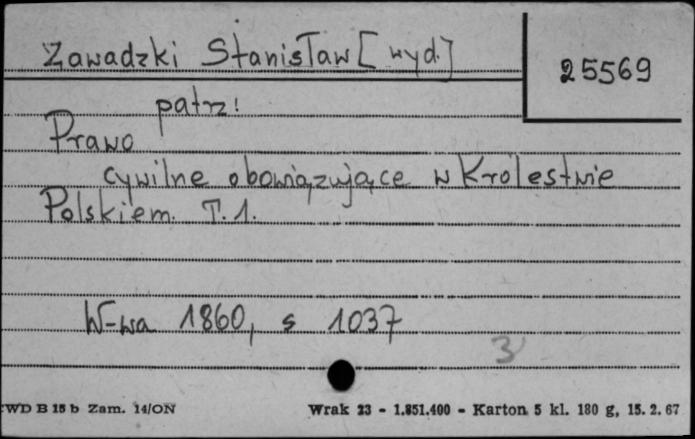 Zawadzki Stanisław [wyd.]
25569
patrz!
Prawo
cywilne obowiązujące w Królestwie
Polskiem. T. 1.
W-wa 1860, s 1037
3
WD B 15 b Zam. 14/ON
Wrak 23 - 1.851.400 - Karton 5 kl. 180 g, 15. 2. 67